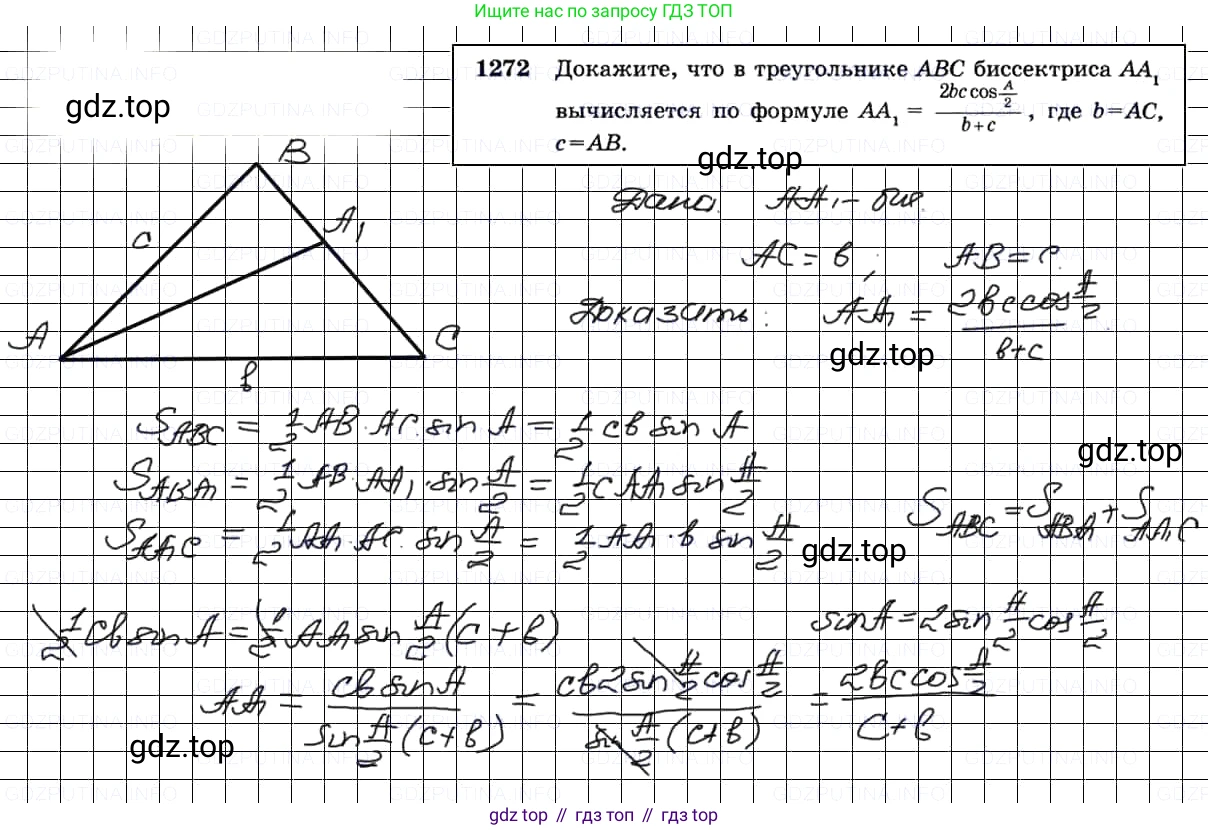 Ищите нас по запросу ГДЗ ТОП
1272 Докажите, что в треугольнике ABC биссектриса AA₁
вычисляется по формуле AA₁ = 2bc cos A/2 / b+c, где b=AC,
c=AB.
gdz.top
gdz.top
B
A₁
c
A
C
b
Дано: AA₁ - бис.
AC = b; AB = c
Доказать: AA₁ = 2bc cos A/2 / b+c
gdz.top
S ABC = 1/2 AB · AC · sin A = 1/2 cb sin A
gdz.top
S ABA₁ = 1/2 AB · AA₁ · sin A/2 = 1/2 c AA₁ sin A/2
S ABC = S ABA₁ + S AA₁C
S AA₁C = 1/2 AA₁ · AC · sin A/2 = 1/2 AA₁ · b sin A/2
gdz.top
1/2 cb sin A = 1/2 AA₁ sin A/2 (c + b)
sin A = 2 sin A/2 cos A/2
AA₁ = cb sin A / sin A/2 (c+b) = cb 2 sin A/2 cos A/2 / sin A/2 (c+b) = 2bc cos A/2 / c+b
gdz.top
gdz top // гдз топ // gdz top